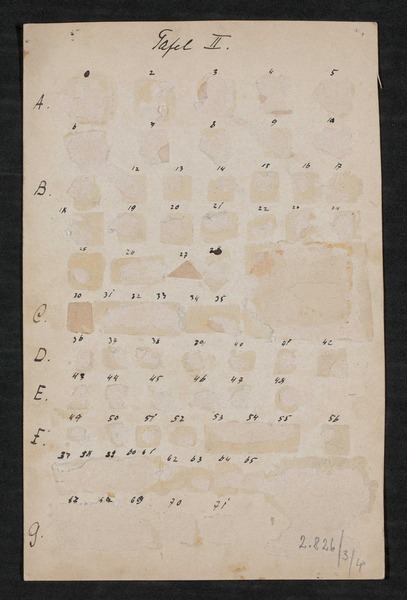 Tafel II.
2 3 4 5
A.
6 7 8 9 10
12 13 14 15 16 17
B.
18 19 20 21 22 23 24
25 26 27 28
30 31 32 33 34 35
C.
36 37 38 39 40 41 42
D.
43 44 45 46 47 48
E.
49 50 51 52 53 54 55 56
F.
57 58 59 60 61 62 63 64 65
67 68 69 70 71
G.
2.826/3/4